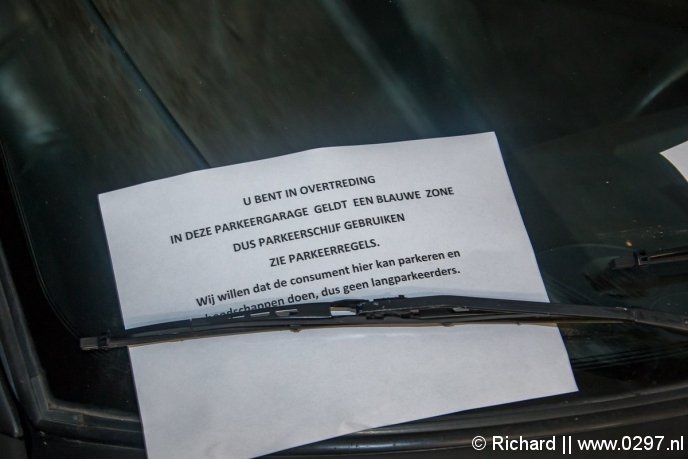 U BENT IN OVERTREDING
IN DEZE PARKEERGARAGE GELDT EEN BLAUWE ZONE
DUS PARKEERSCHIJF GEBRUIKEN
ZIE PARKEERREGELS.
Wij willen dat de consument hier kan parkeren en
boodschappen doen, dus geen langparkeerders.
© Richard || www.0297.nl